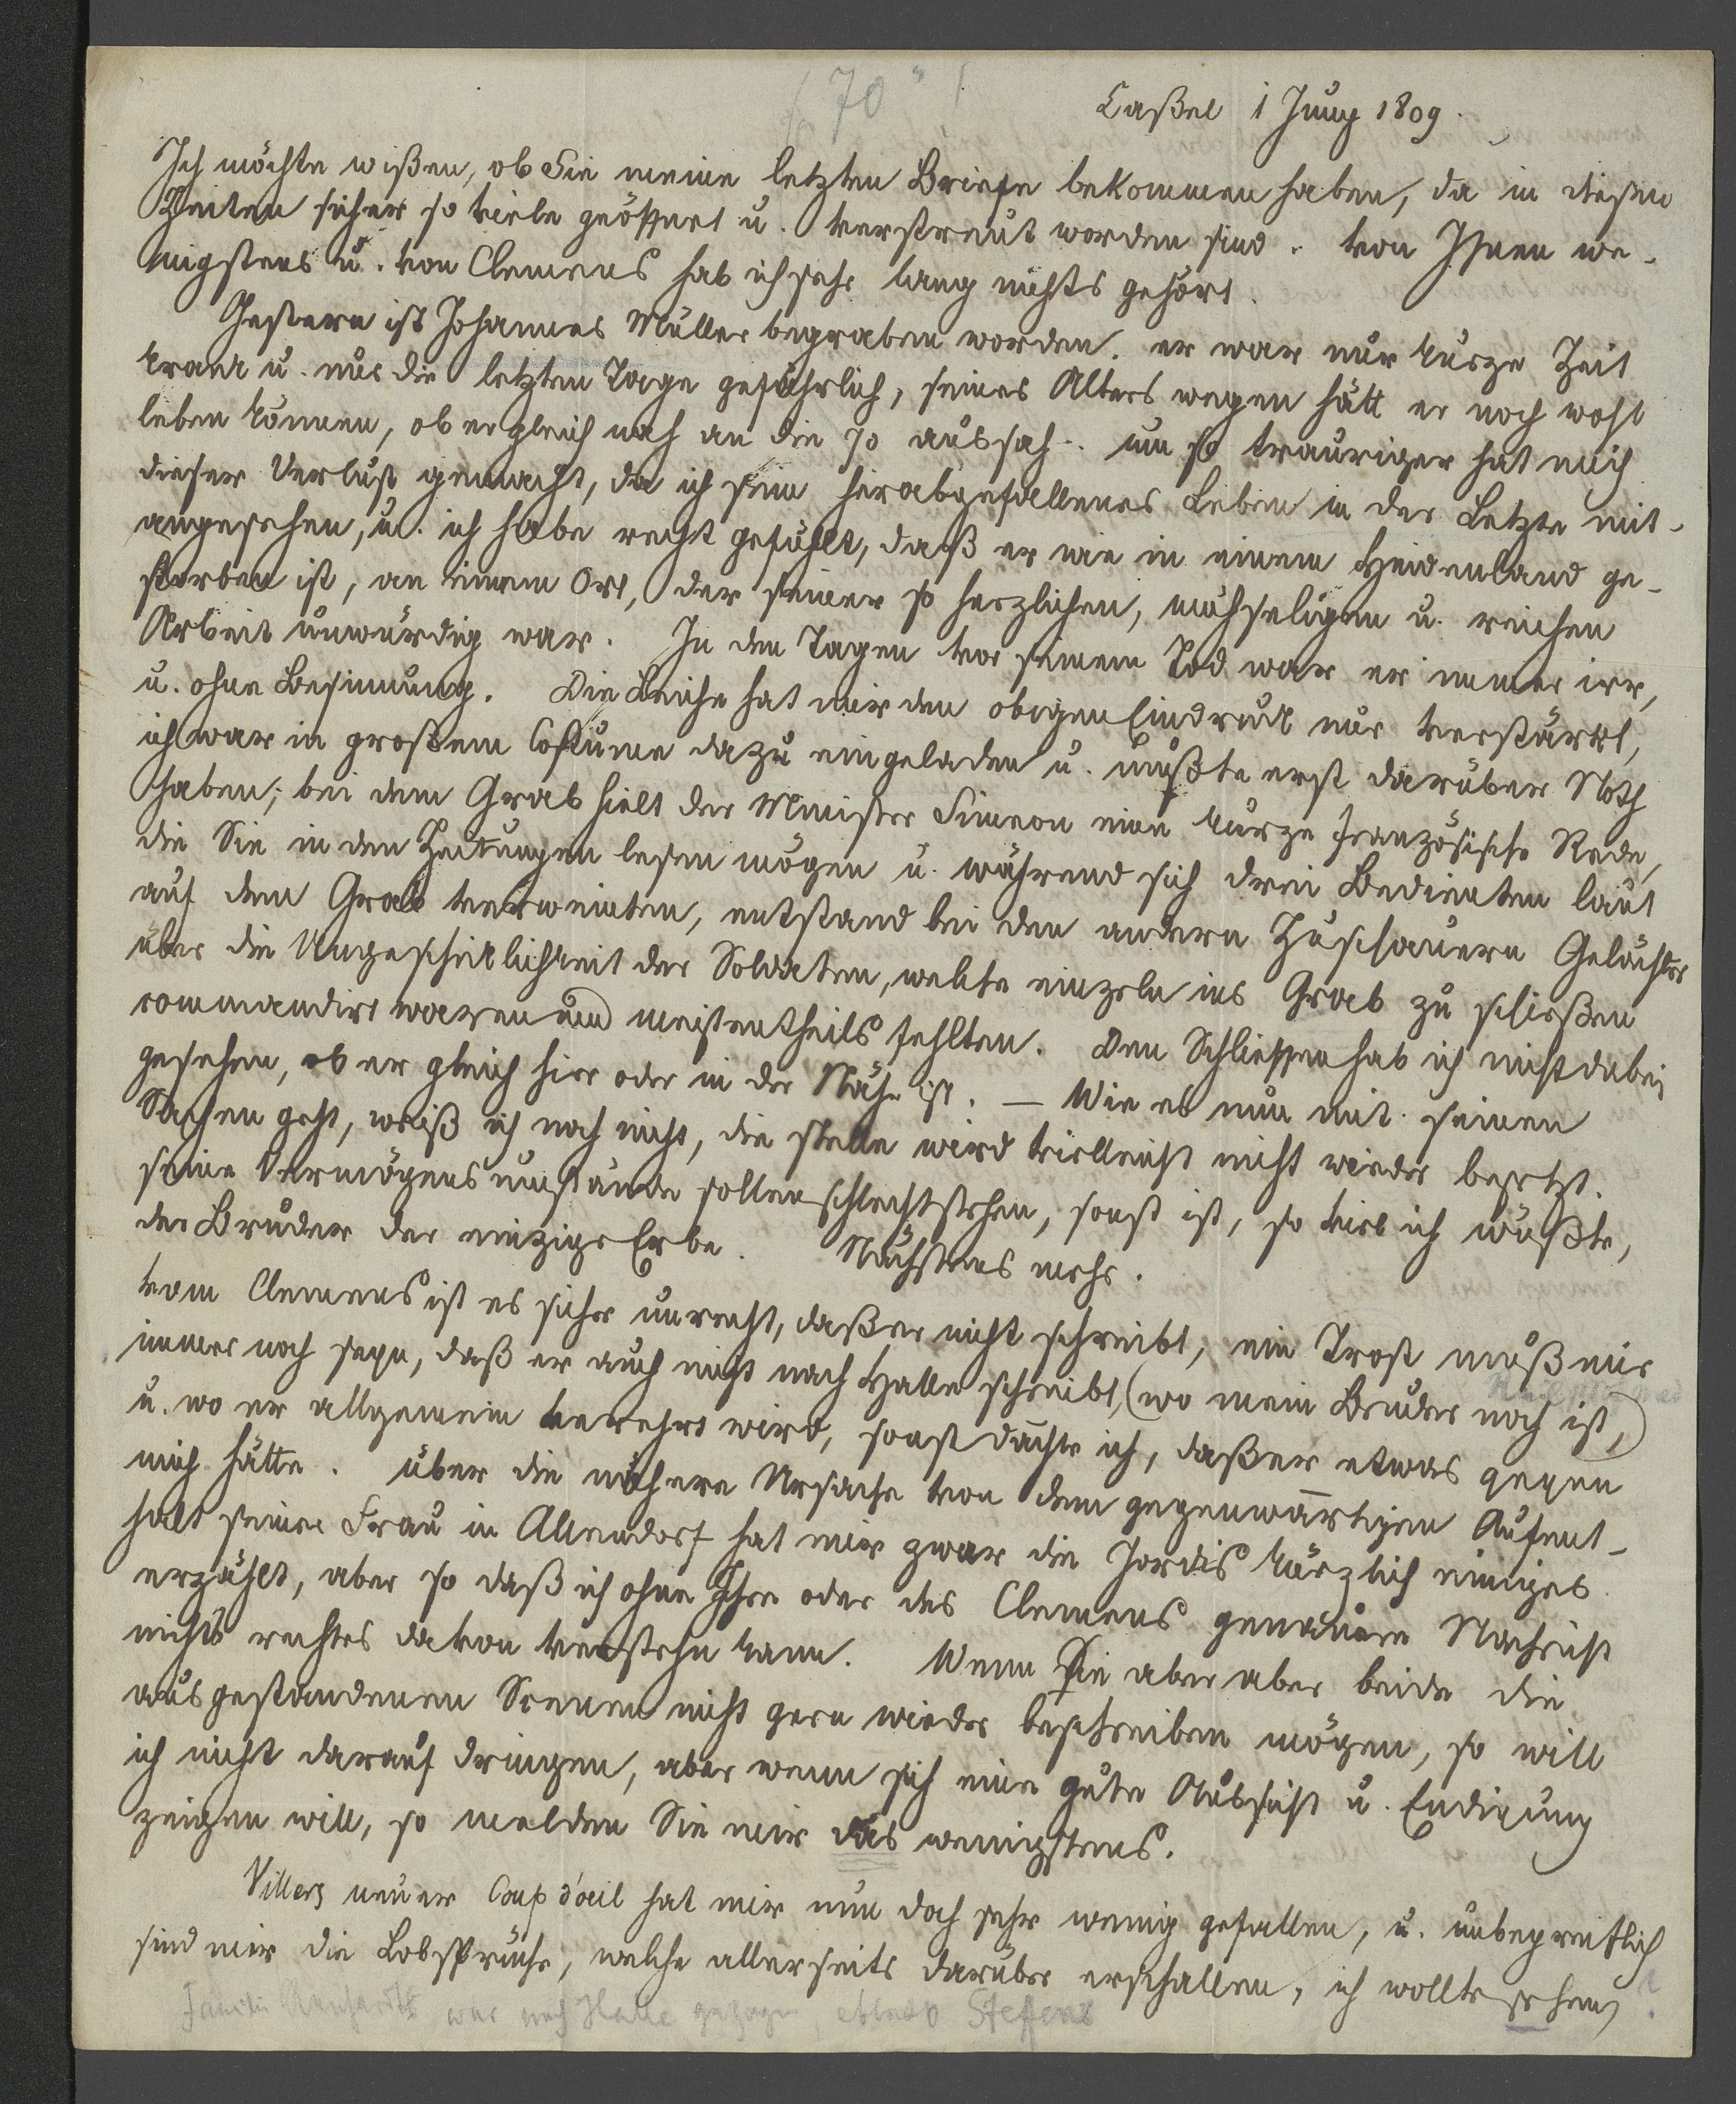 (70"!
Caßel 1 Juny 1809.
Ich möchte wißen, ob Sie meine letzten Briefe bekommen haben, da in diesen
Zeiten sicher so viele geöffnet u. verstreut worden sind. von Ihnen we-
nigstens u. von Clemens hab ich sehr lang nichts gehört.
Gestern ist Johannes Müller begraben worden. er war nur kurze Zeit
krank u. nur die letzten Tage gefährlich, seines Alters wegen hätt er noch wohl
leben können, ob er gleich nah an die 70 aussah. um so trauriger hat mich
dieser Verlust gemacht, da ich sein herabgefallenes Leben in der Letzte mit-
angesehen, u. ich habe recht gefühlt, daß er wie in einem Heidenland ge-
storben ist, an einem Ort, der seiner so herzlichen, mühseligen u. reichen
Arbeit unwürdig war. In den Tagen vor seinem Tod war er immer irr,
u. ohne Besinnung. Die Leiche hat mir den obigen Eindruck nur verstärkt,
ich war in großem Costume dazu eingeladen u. mußte erst darüber Noth
haben; bei dem Grab hielt der Minister Simeon eine kurze französische Rede,
die Sie in den Zeitungen lesen mögen u. während sich drei Bedienten laut
auf dem Grab verweinten, entstand bei den andern Zuschauern Gelächter
über die Ungeschicklichkeit der Soldaten, welche einzeln ins Grab zu schießen
commandirt waren und meistentheils fehlten. Den Schlieffen hab ich nicht dabei
gesehen, ob er gleich hier oder in der Nähe ist. — Wie es nun mit seinen
Sachen geht, weiß ich noch nicht, die Stelle wird vielleicht nicht wieder besetzt.
seine Vermögensumstände sollen schlecht stehen, sonst ist, so viel ich wüßte,
der Bruder der einzige Erbe. Nächstens mehr.
vom Clemens ist es sicher unrecht, daß er nicht schreibt, ein Trost muß mir
immer noch seyn, daß er auch nicht nach Halle schreibt, (wo mein Bruder noch ist,)
u. wo er allgemein verehrt wird, sonst dächte ich, daß er etwas gegen
mich hätte. über die nähere Ursache von dem gegenwärtigen Aufent-
halt seiner Frau in Allendorf hat mir zwar die Jordis kürzlich einiges
erzählt, aber so daß ich ohne Ihre oder des Clemens genauere Nachricht
nichts rechtes davon verstehn kann. Wenn Sie aber aber beide die
ausgestandenen Scenen nicht gern wieder beschreiben mögen, so will
ich nicht darauf dringen, aber wenn sich eine gute Aussicht u. Endigung
zeigen will, so melden Sie mir das wenigstens.
Villers neuer Coup d'œil hat mir nun doch sehr wenig gefallen, u. unbegreiflich
sind mir die Lobsprüche, welche allerseits darüber erschallen, ich wollte sehen,
war nach Halle gezogen, ebenso Steffens